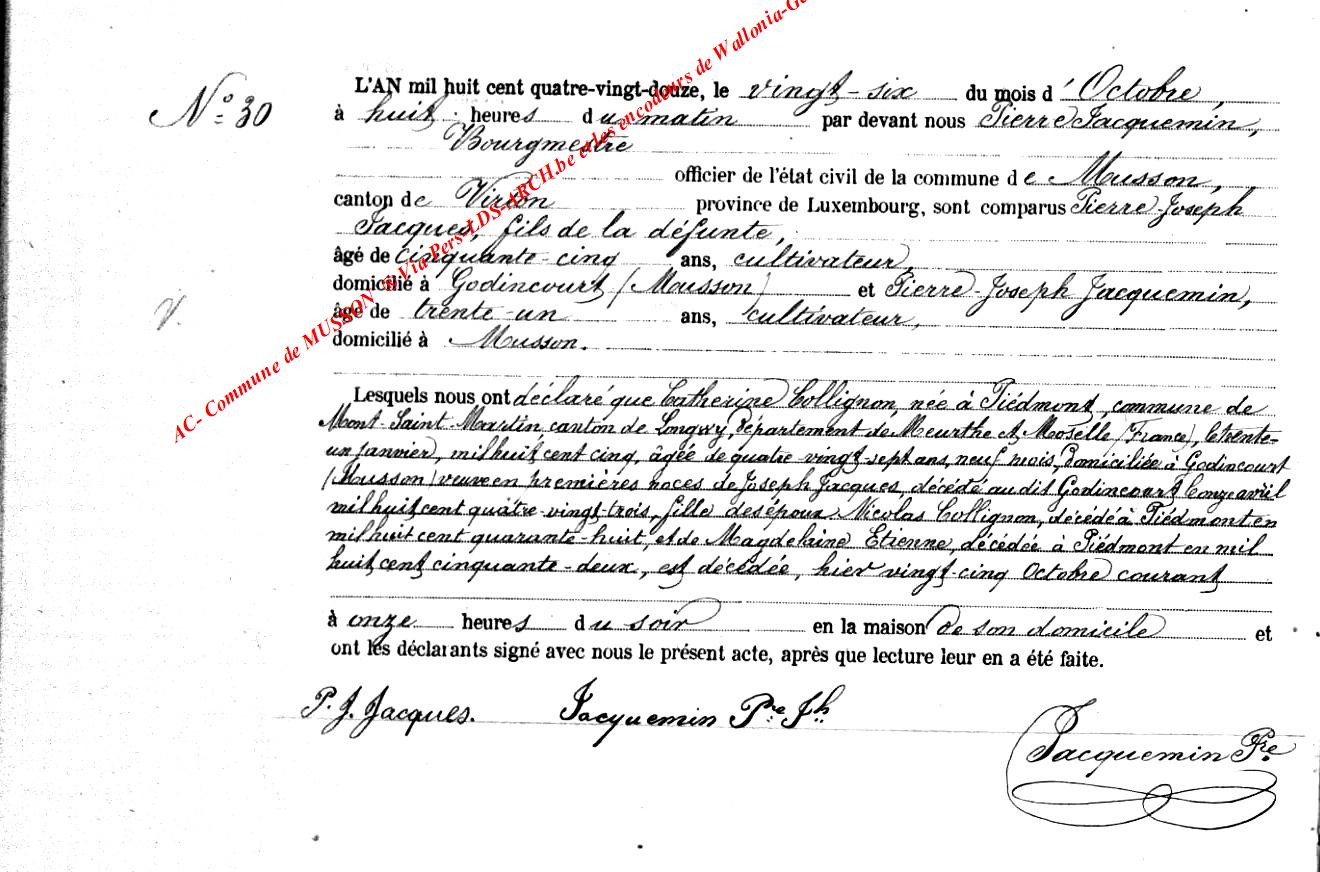 L'AN mil huit cent quatre-vingt-douze, le vingt-six du mois d'Octobre,
N° 30
à huit heures du matin par devant nous Pierre Jacquemin,
Bourgmestre
officier de l'état civil de la commune de Musson,
canton de Virton province de Luxembourg, sont comparus Pierre-Joseph
Jacques, fils de la défunte,
âgé de cinquante-cinq ans, cultivateur,
domicilié à Godincourt (Musson) et Pierre-Joseph Jacquemin,
V.
âgé de trente-un ans, cultivateur,
domicilié à Musson.
AC- Commune de MUSSON Via Pers-LDS-ARCH.be et les encodeurs de Wallonia-Ge
Lesquels nous ont déclaré que Catherine Collignon, née à Piédmont, commune de
Mont-Saint-Martin, canton de Longwy, Département de Meurthe et Moselle (France), le trente-
un janvier, mil huit cent cinq, âgée de quatre-vingt-sept ans, neuf mois, Domiciliée à Godincourt
(Musson) veuve en premières noces de Joseph Jacques, décédé audit Godincourt le onze avril
mil huit cent quatre-vingt-trois, fille des époux Nicolas Collignon, décédé à Piédmont en
mil huit cent quarante-huit, et de Magdelaine Etienne, décédée à Piédmont en mil
huit cent cinquante-deux, est décédée, hier vingt-cinq Octobre courant
à onze heures du soir en la maison de son domicile et
ont les déclarants signé avec nous le présent acte, après que lecture leur en a été faite.
P. J. Jacques. Jacquemin Pre Jh
Jacquemin Pre